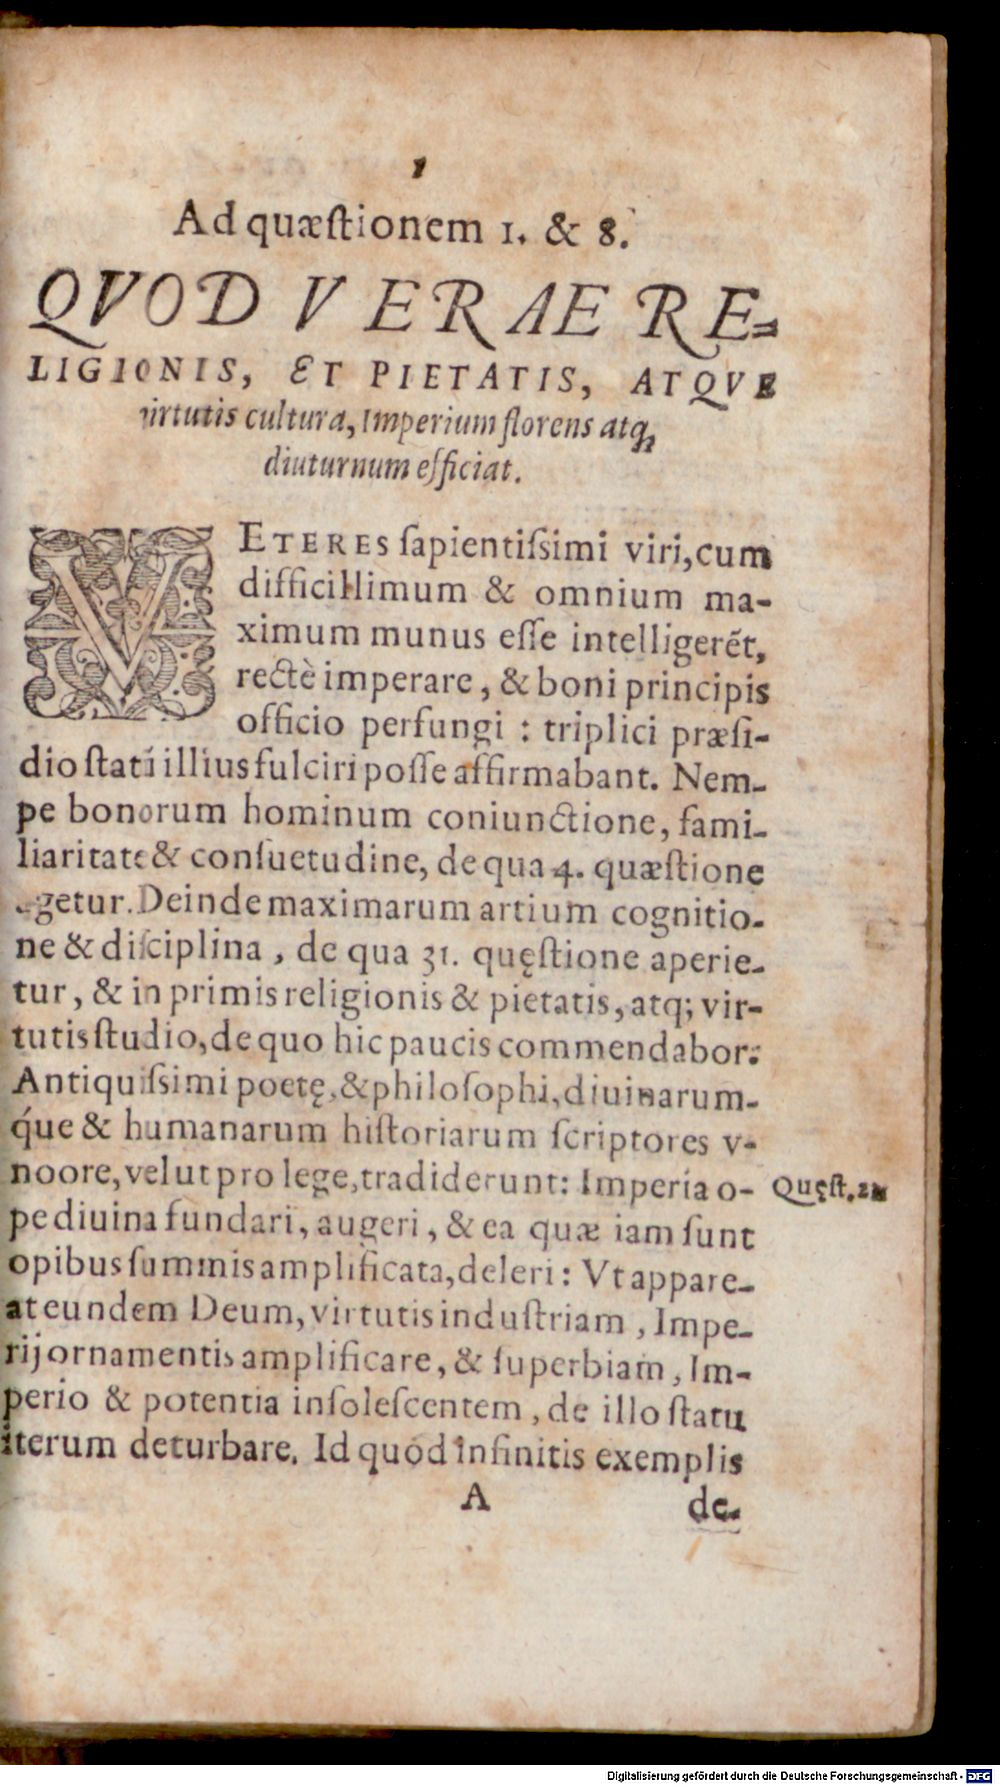 1
Ad quæſtionem 1. & 8.
QVOD VERAE RE=
LIGIONIS, ET PIETATIS, ATQVE
virtutis cultura, Imperium florens atq₃
diuturnum efficiat.
VETERES ſapientiſsimi viri, cum
difficillimum & omnium ma-
ximum munus eſſe intelligerẽt,
rectè imperare, & boni principis
officio perfungi : triplici præſi-
dio ſtatū illius fulciri poſſe affirmabant. Nem-
pe bonorum hominum coniunctione, fami-
liaritate & conſuetudine, de qua 4. quæſtione
agetur. Deinde maximarum artium cognitio-
ne & diſciplina, de qua 31. quęſtione aperie-
tur, & in primis religionis & pietatis, atq; vir-
tutis ſtudio, de quo hic paucis commendabor:
Antiquiſsimi poetę, & philoſophi, diuinarum-
q́ue & humanarum hiſtoriarum ſcriptores v-
no ore, velut pro lege, tradiderunt: Imperia o-
pe diuina fundari, augeri, & ea quæ iam ſunt
opibus ſummis amplificata, deleri: Vt appare-
at eundem Deum, virtutis induſtriam, Impe-
rij ornamentis amplificare, & ſuperbiam, Im-
perio & potentia inſoleſcentem, de illo ſtatu
iterum deturbare. Id quòd infinitis exemplis
Quęſt.
A
de-
Digitalisierung gefördert durch die Deutsche Forschungsgemeinschaft - DFG